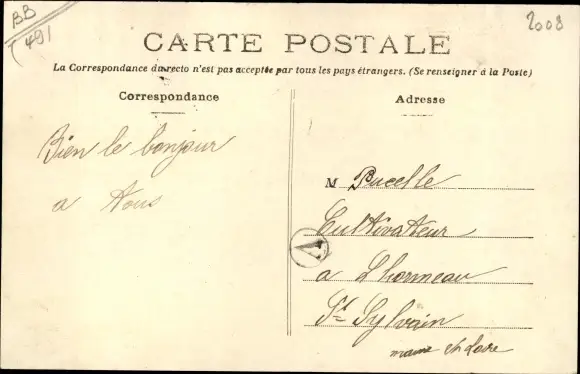 BB
491
2008
CARTE POSTALE
La Correspondance du recto n'est pas acceptée par tous les pays étrangers. (Se renseigner à la Poste)
Correspondance
Bien le bonjour
a tous
Adresse
M Pucelle
Cultivateur
A
a L'hormeau
St Sylvain
maine et Loire